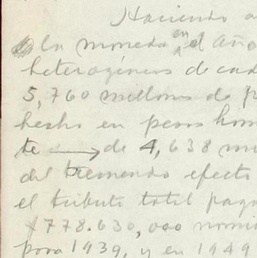 Haciendo a
la moneda en el año
heterogéneos de cad
5,760 millons de p
hecho en pesos hom
te → de 4,638 mi
del tremendo efecto
el tributo total pag
$778.630,000 nomi
para 1939, y en 1949